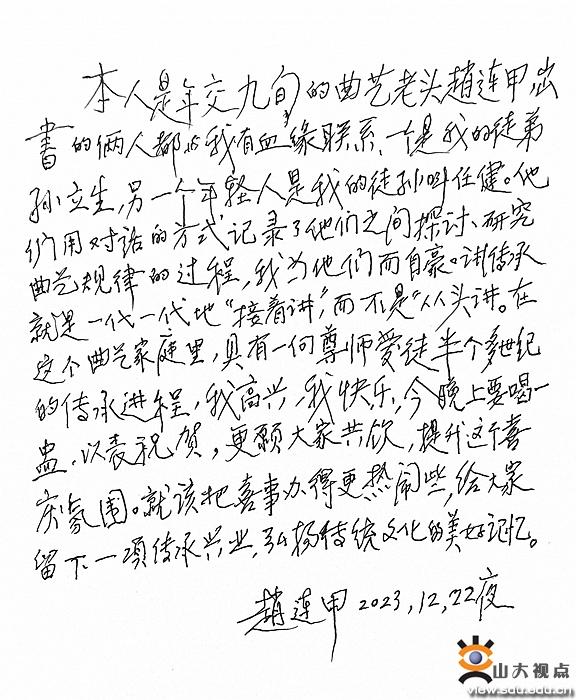 本人是年交九旬的曲艺老头趙连甲,出
書的俩人都与我有血缘联系、一是我的徒弟
孙立生,另一个年轻人是我的徒孙叫任健。他
们用对话的方式,记录了他们之间探讨、研究
曲艺规律的过程,我为他们而自豪。讲传承
就是一代一代地“接着讲”,而不是“从头讲。在
这个曲艺家庭里,具有一向尊师爱徒半个多世纪
的传承进程,我高兴,我快乐,今晚上要喝一
盅,以表祝贺,更願大家共饮,提升这个喜
庆氛围。就该把喜事办得更热闹些,给大家
留下一项传承兴业,弘扬传统文化的美好记忆。
趙连甲 2023,12,22夜
山大视点
view.sdu.edu.cn